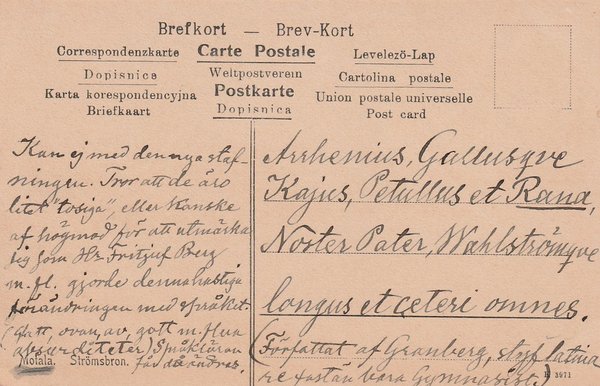 Brefkort — Brev-Kort
Correspondenzkarte Carte Postale Levelezö-Lap
Dopisnice Weltpostverein Cartolina postale
Karta korespondencyjna Postkarte Union postale universelle
Briefkaart Dopisnica Post card
Kan ej med den nya staf-
ningen. Tror att de äro
litet "tosiga", eller kanske
af högmod för att utmärka
sig som Hr Fritjuf Berg
m. fl. gjorde denna hastiga
förändringen med språket.
(gatt, ovan, av, gott m. fl.
absurditeter) Språkläran
får då ändras.
Motala. Strömsbron.
Arrhenius, Gallusqve
Kajus, Petullus et Rana,
Noster Pater, Wahlströmqve
longus et ceteri omnes.
(Författat af Granberg, styf latina
re fastän bara Gymnasist)
3971